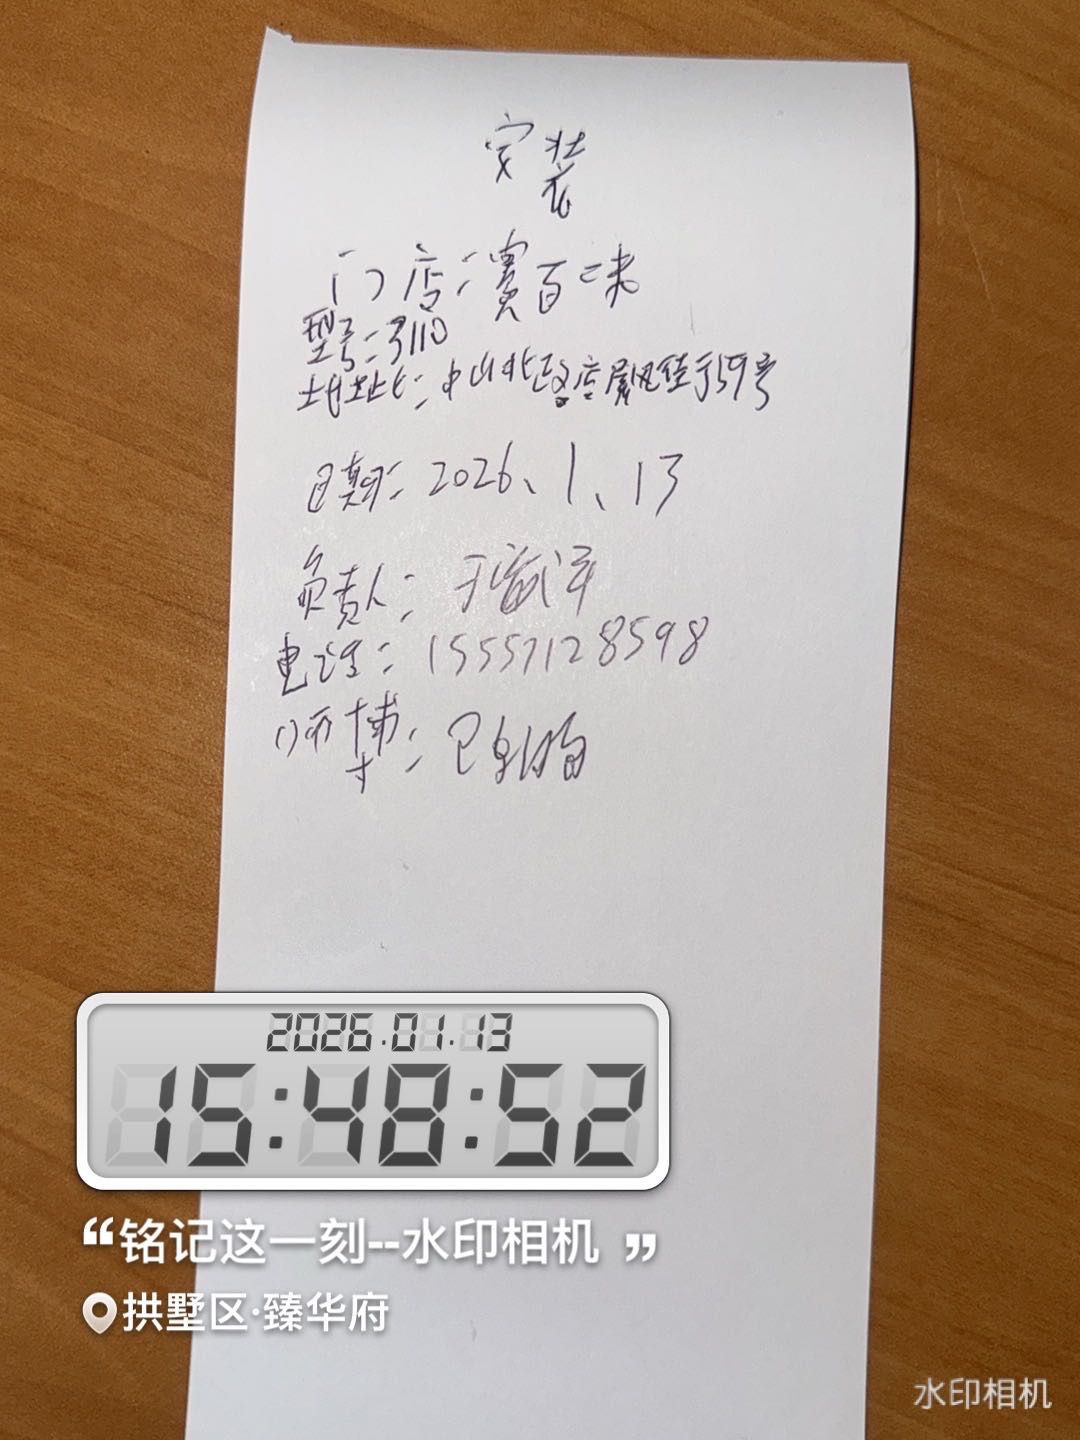 安装
门店：賈百味
型号：3110
地址：中山北路店屏风街159号
日期：2026、1、13
负责人：于
电话：15557128598
师傅：
2026.01.13
15:48:52
“铭记这一刻--水印相机”
拱墅区·臻华府
水印相机